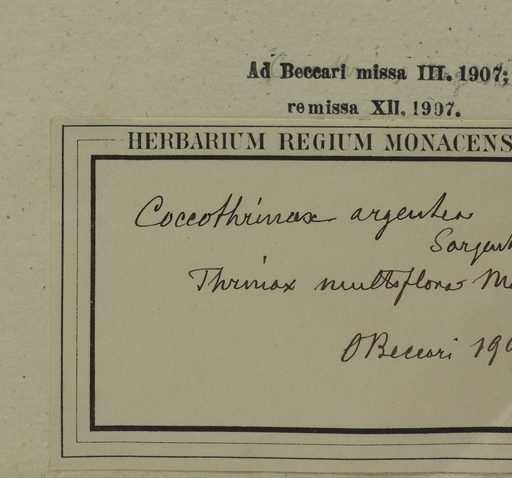 Ad Beccari missa III. 1907;
remissa XII. 1907.
HERBARIUM REGIUM MONACENS
Coccothrinax argentea
Sargent
Thrinax multiflora Ma
O Beccari 190